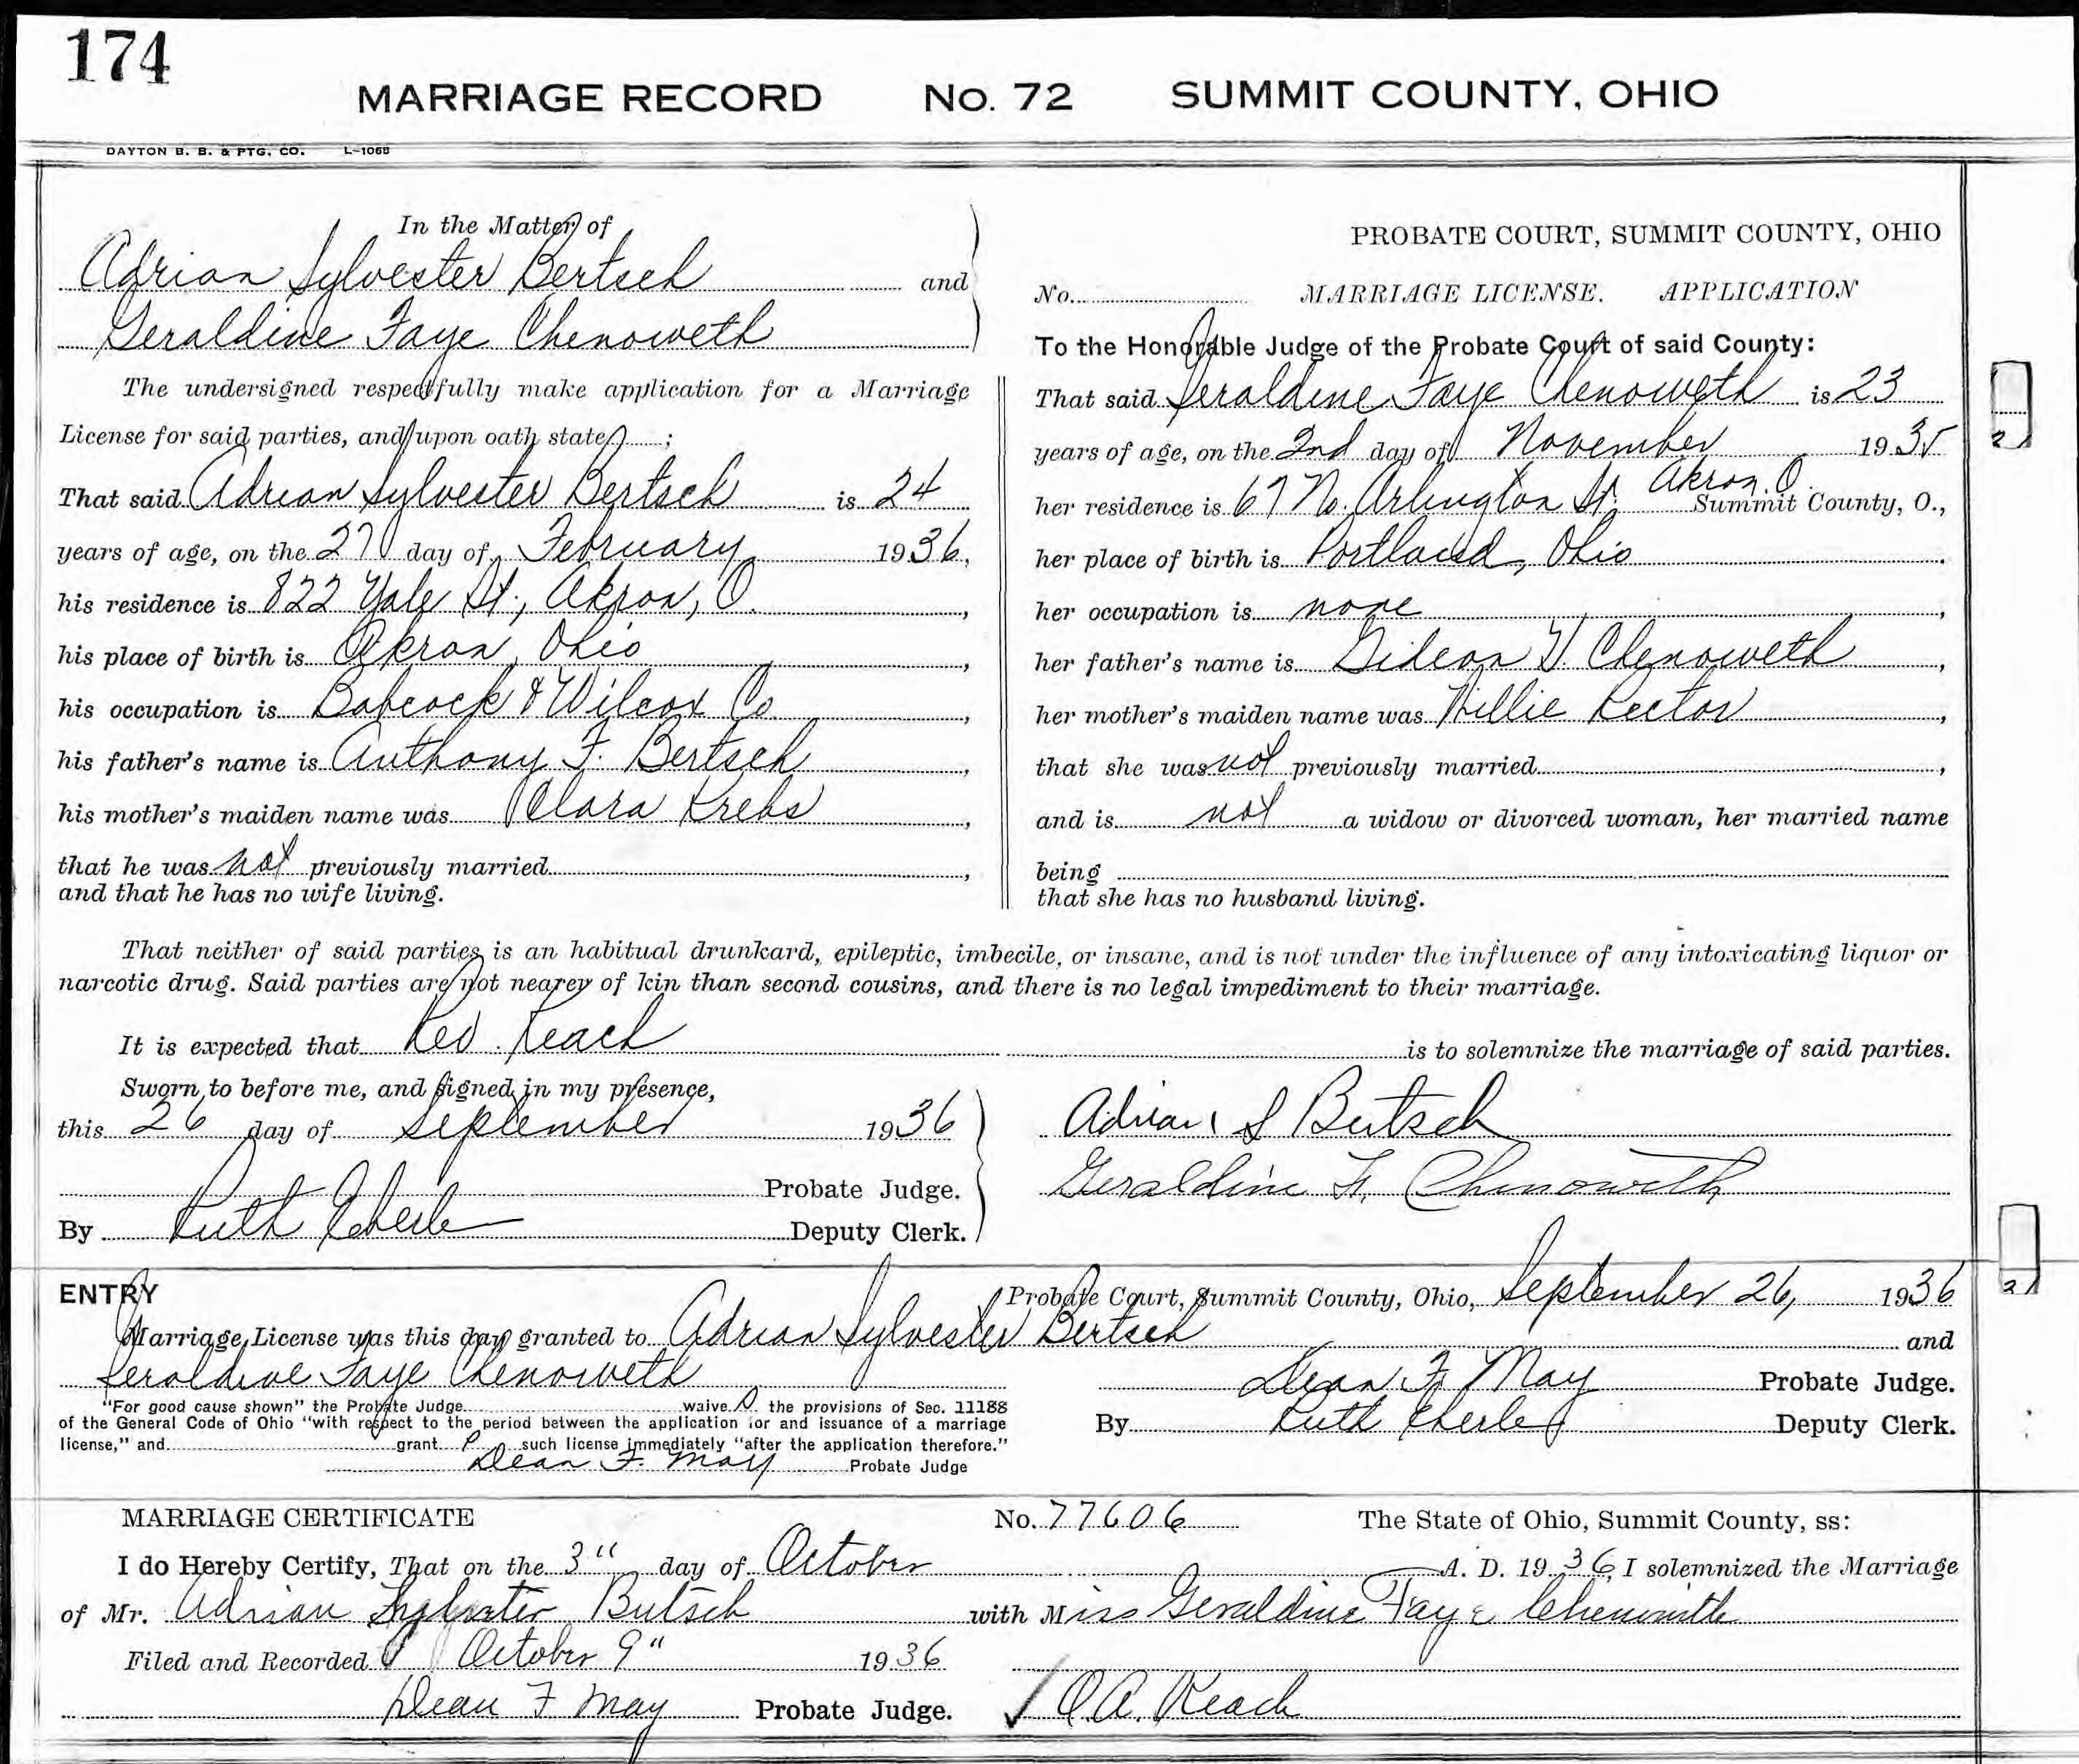 174
MARRIAGE RECORD No. 72 SUMMIT COUNTY, OHIO
DAYTON B. B. & PTG. CO. L-1068
In the Matter of
Adrian Sylvester Bertsch and
Geraldine Faye Chenoweth
The undersigned respectfully make application for a Marriage
License for said parties, and upon oath state ;
That said Adrian Sylvester Bertsch is 24
years of age, on the 27 day of February 1936,
his residence is 822 Yale St., Akron, O. ,
his place of birth is Akron, Ohio ,
his occupation is Babcock & Wilcox Co. ,
his father's name is Anthony F. Bertsch ,
his mother's maiden name was Clara Krebs ,
that he was not previously married ,
and that he has no wife living.
PROBATE COURT, SUMMIT COUNTY, OHIO
No. MARRIAGE LICENSE. APPLICATION
To the Honorable Judge of the Probate Court of said County:
That said Geraldine Faye Chenoweth is 23
years of age, on the 2nd day of November 1935
her residence is 67 N. Arlington St. Akron, O. Summit County, O.,
her place of birth is Portland, Ohio .
her occupation is none ,
her father's name is Gideon Chenoweth ,
her mother's maiden name was Rector ,
that she was not previously married ,
and is not a widow or divorced woman, her married name
being
that she has no husband living.
That neither of said parties is an habitual drunkard, epileptic, imbecile, or insane, and is not under the influence of any intoxicating liquor or
narcotic drug. Said parties are not nearer of kin than second cousins, and there is no legal impediment to their marriage.
It is expected that Rev. Keach is to solemnize the marriage of said parties.
Sworn to before me, and signed in my presence,
this 26 day of September 1936
Probate Judge.
By Ruth Eberle Deputy Clerk.
Adrian S Bertsch
Geraldine F. Chenoweth
ENTRY Probate Court, Summit County, Ohio, September 26, 1936
Marriage License was this day granted to Adrian Sylvester Bertsch and
Geraldine Faye Chenoweth
Dean F. May Probate Judge.
By Ruth Eberle Deputy Clerk.
"For good cause shown" the Probate Judge waive s the provisions of Sec. 11188
of the General Code of Ohio "with respect to the period between the application for and issuance of a marriage
license," and grant s such license immediately "after the application therefore."
Dean F. May Probate Judge
MARRIAGE CERTIFICATE No. 77606 The State of Ohio, Summit County, ss:
I do Hereby Certify, That on the 3" day of October A. D. 1936, I solemnized the Marriage
of Mr. Adrian Sylvester Bertsch with Miss Geraldine Faye Chenoweth
Filed and Recorded October 9" 1936
Dean F May Probate Judge. O.A. Keach